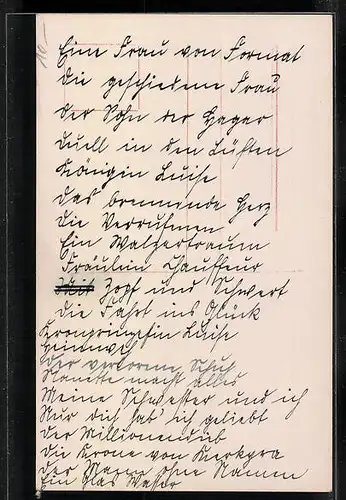 10.-
Eine Frau von Format
Die geschiedene Frau
Der Sohn der Hagar
Duell in den Lüften
Königin Luise
Das brennende Herz
Die Verrufenen
Ein Walzertraum
Fräulein Chauffeur
Zopf und Schwert
Die Fahrt ins Glück
Kronprinzessin Luise
Heimweh
Der verlorene Schuh
Nanette macht alles
Meine Schwester und ich
Nur dich hab' ich geliebt
Der Millionendieb
Die Krone von Kerkyra
Der Mann ohne Namen
Ein Glas Wasser